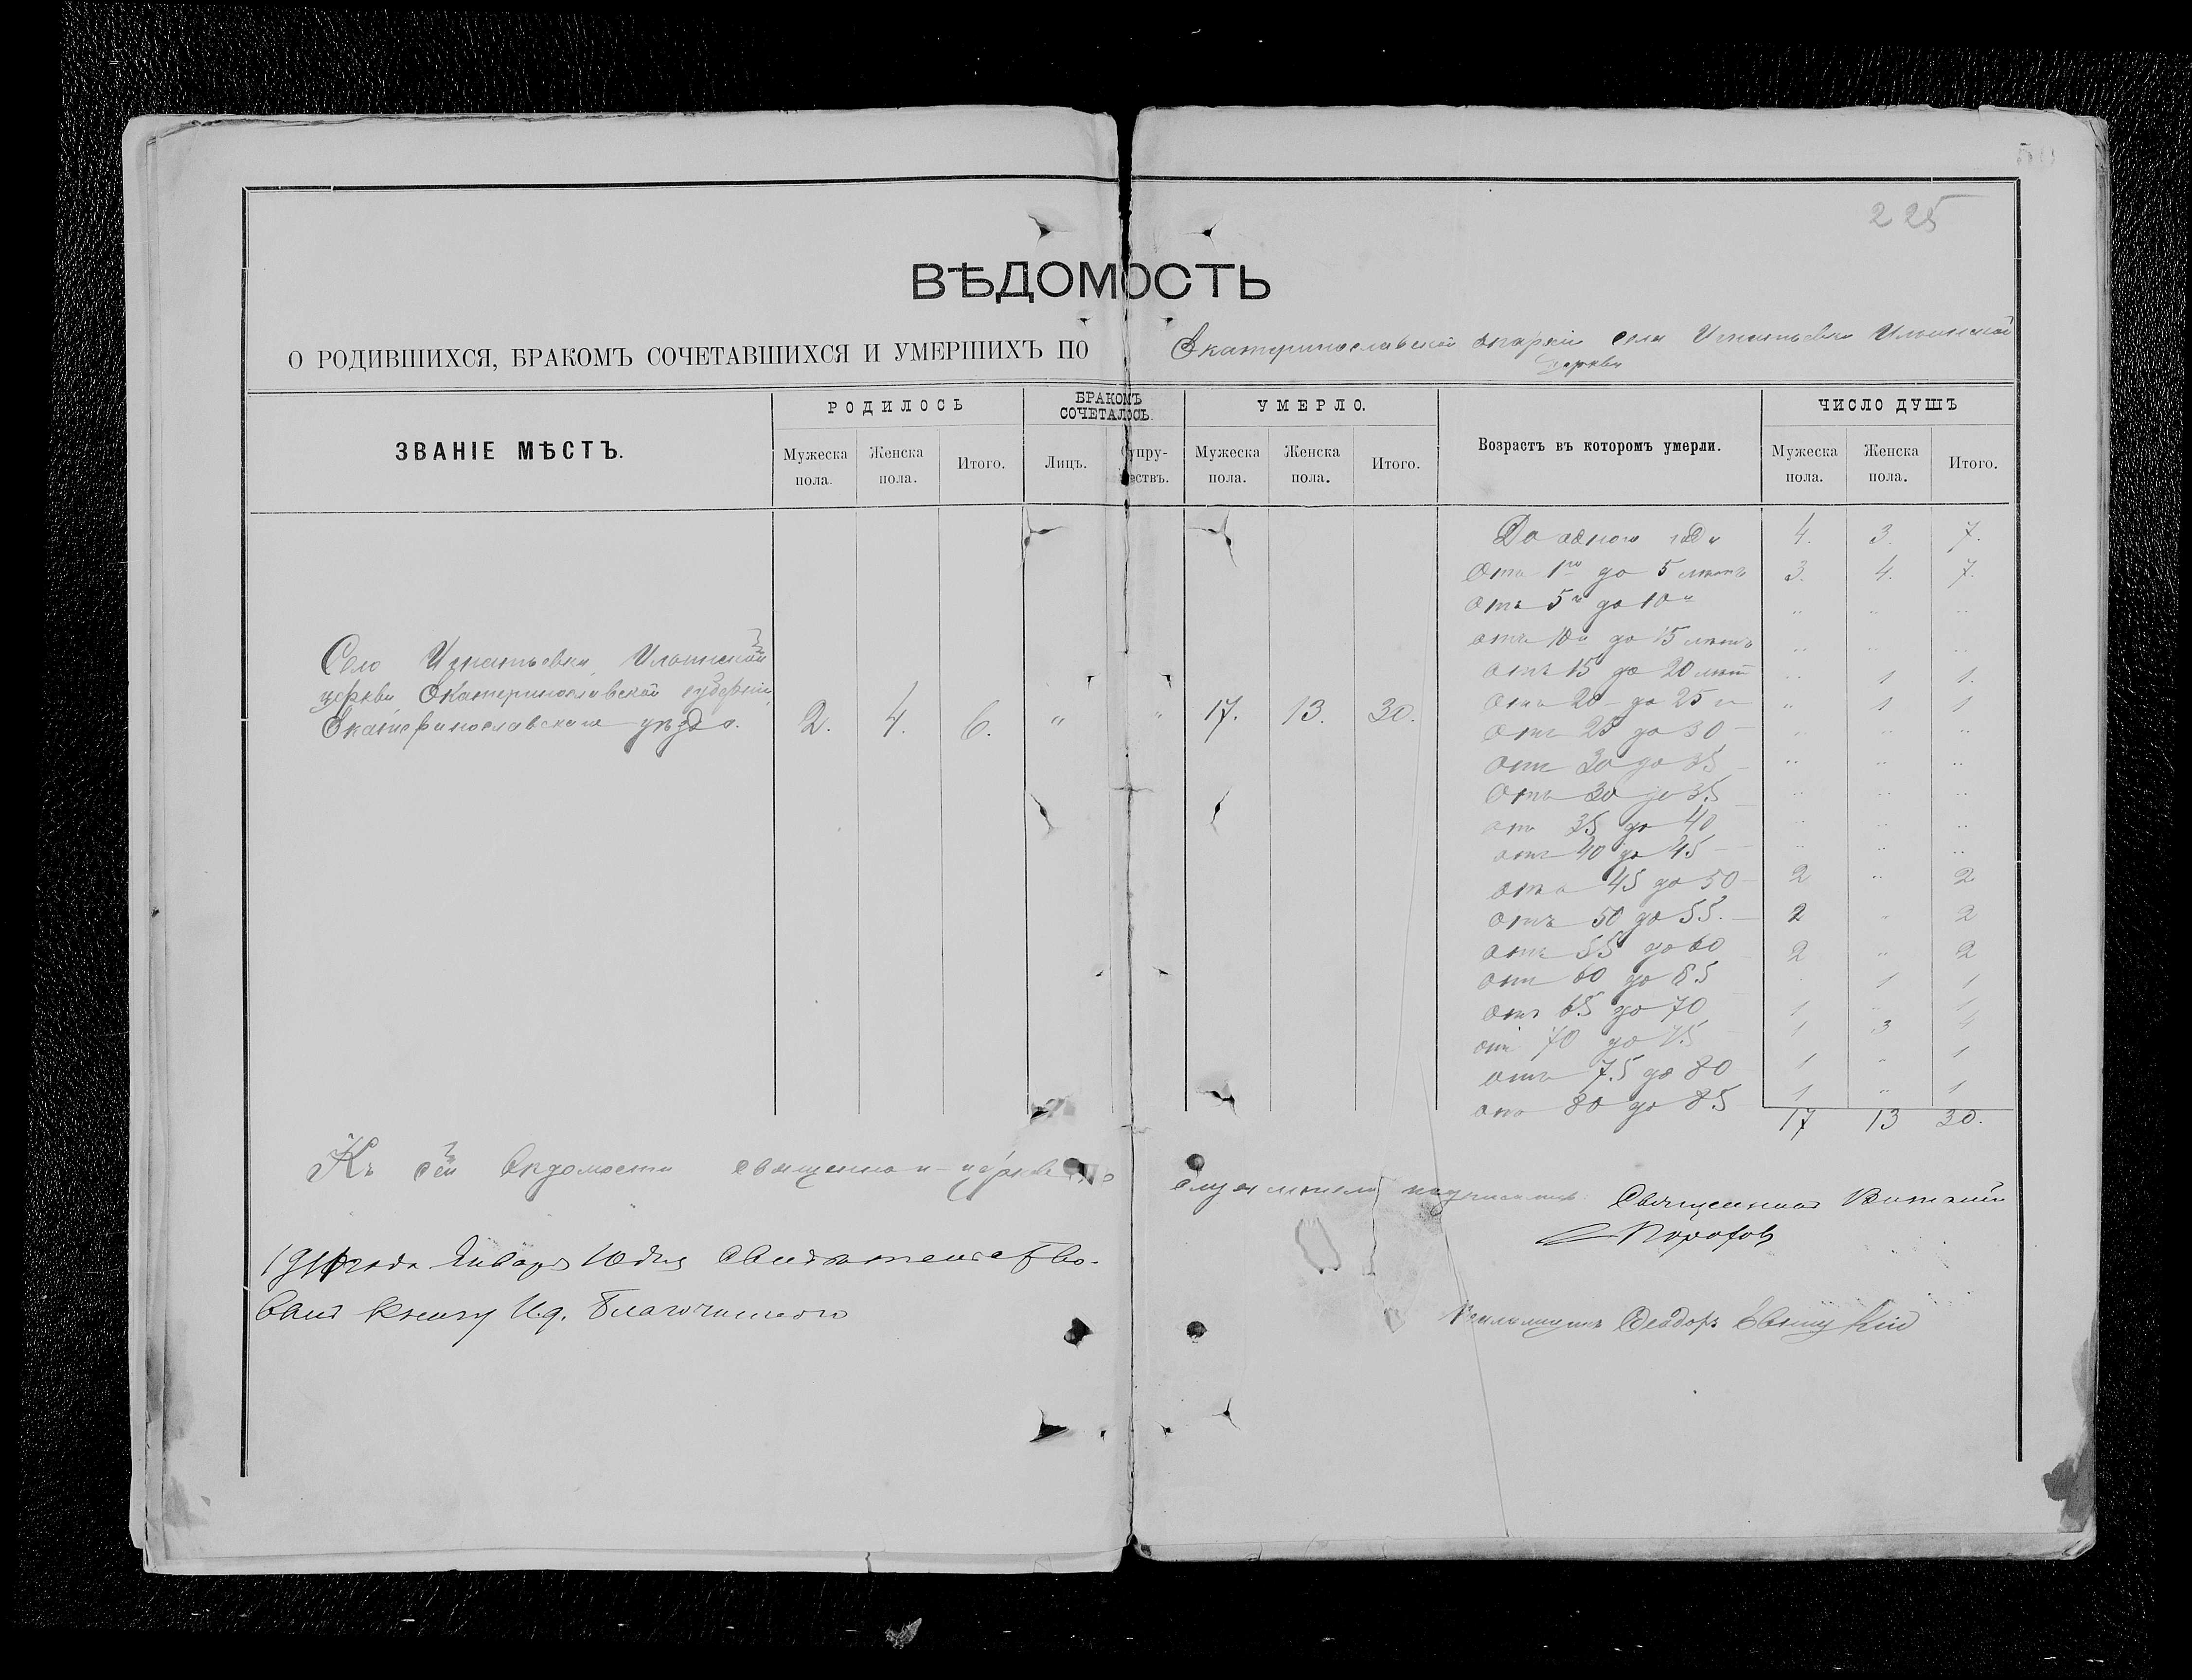 225
ВѢДОМОСТЬ
О РОДИВШИХСЯ, БРАКОМЪ СОЧЕТАВШИХСЯ И УМЕРШИХЪ ПО Екатеринославской епархіи села Игнатьевки Ильинской
церкви
ЗВАНІЕ МѢСТЪ. РОДИЛОСЬ БРАКОМЪ СОЧЕТАЛОСЬ. УМЕРЛО. Возрастъ въ которомъ умерли. ЧИСЛО ДУШЪ
Мужеска пола. Женска пола. Итого. Лицъ. Супружествъ. Мужеска пола. Женска пола. Итого. Мужеска пола. Женска пола. Итого.
До одного года 4. 3. 7.
Отъ 1го до 5 лѣтъ 3. 4. 7.
отъ 5и до 10и " " "
отъ 10и до 15 лѣтъ " " "
отъ 15 до 20 лѣт " 1 1.
отъ 20 до 25 " 1 1
отъ 25 до 30 " " "
отъ 30 до 35 " " "
отъ 30 до 35 " " "
отъ 35 до 40 " " "
отъ 40 до 45 " " "
отъ 45 до 50 2 " 2
отъ 50 до 55. 2 " 2
отъ 55 до 60 2 " 2
отъ 60 до 65 1 1
отъ 65 до 70 1 " 1
отъ 70 до 75 1 3 4
отъ 75 до 80 1 " 1
отъ 80 до 85 1 " 1
17 13 30.
Село Игнатьевка, Ильинской
церкви Екатеринославской губерніи,
Екатеринославскаго уѣзда. 2. 4. 6. " " 17. 13. 30.
Къ сей вѣдомости священно и церковно
служители подписались: Священник Виталий
Порохов
Января 10 дня свидѣтельство-
вал книгу И.д. Благочиннаго
Псаломщикъ Феодоръ